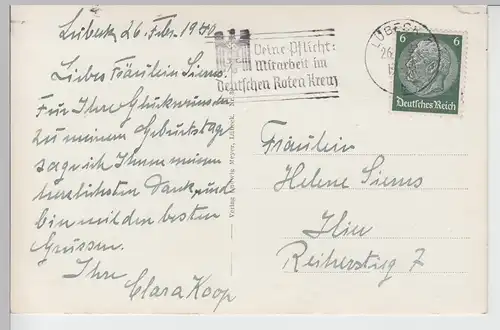 Lübeck 26. Febr. 1940
Liebes Fräulein Siems!
Für Ihre Glückwünsche
zu meinem Geburtstage
sage ich Ihnen meinen
herzlichsten Dank, und
bin mit den besten
Grüssen.
Ihre
Clara Koop
Verlag Ludwig Meyer, Lübeck.
Deine Pflicht:
Mitarbeit im
Deutschen Roten Kreuz
LÜBECK
26
6 6
Deutsches Reich
Fräulein
Helene Siems
Hier
Reiherstieg 7